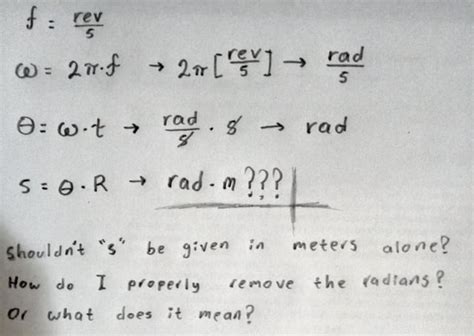 f = rev/s
ω = 2π·f → 2π[rev/s] → rad/s
θ = ω·t → rad/s · s → rad
s = θ·R → rad·m???
Shouldn't "s" be given in meters alone?
How do I properly remove the radians?
Or what does it mean?